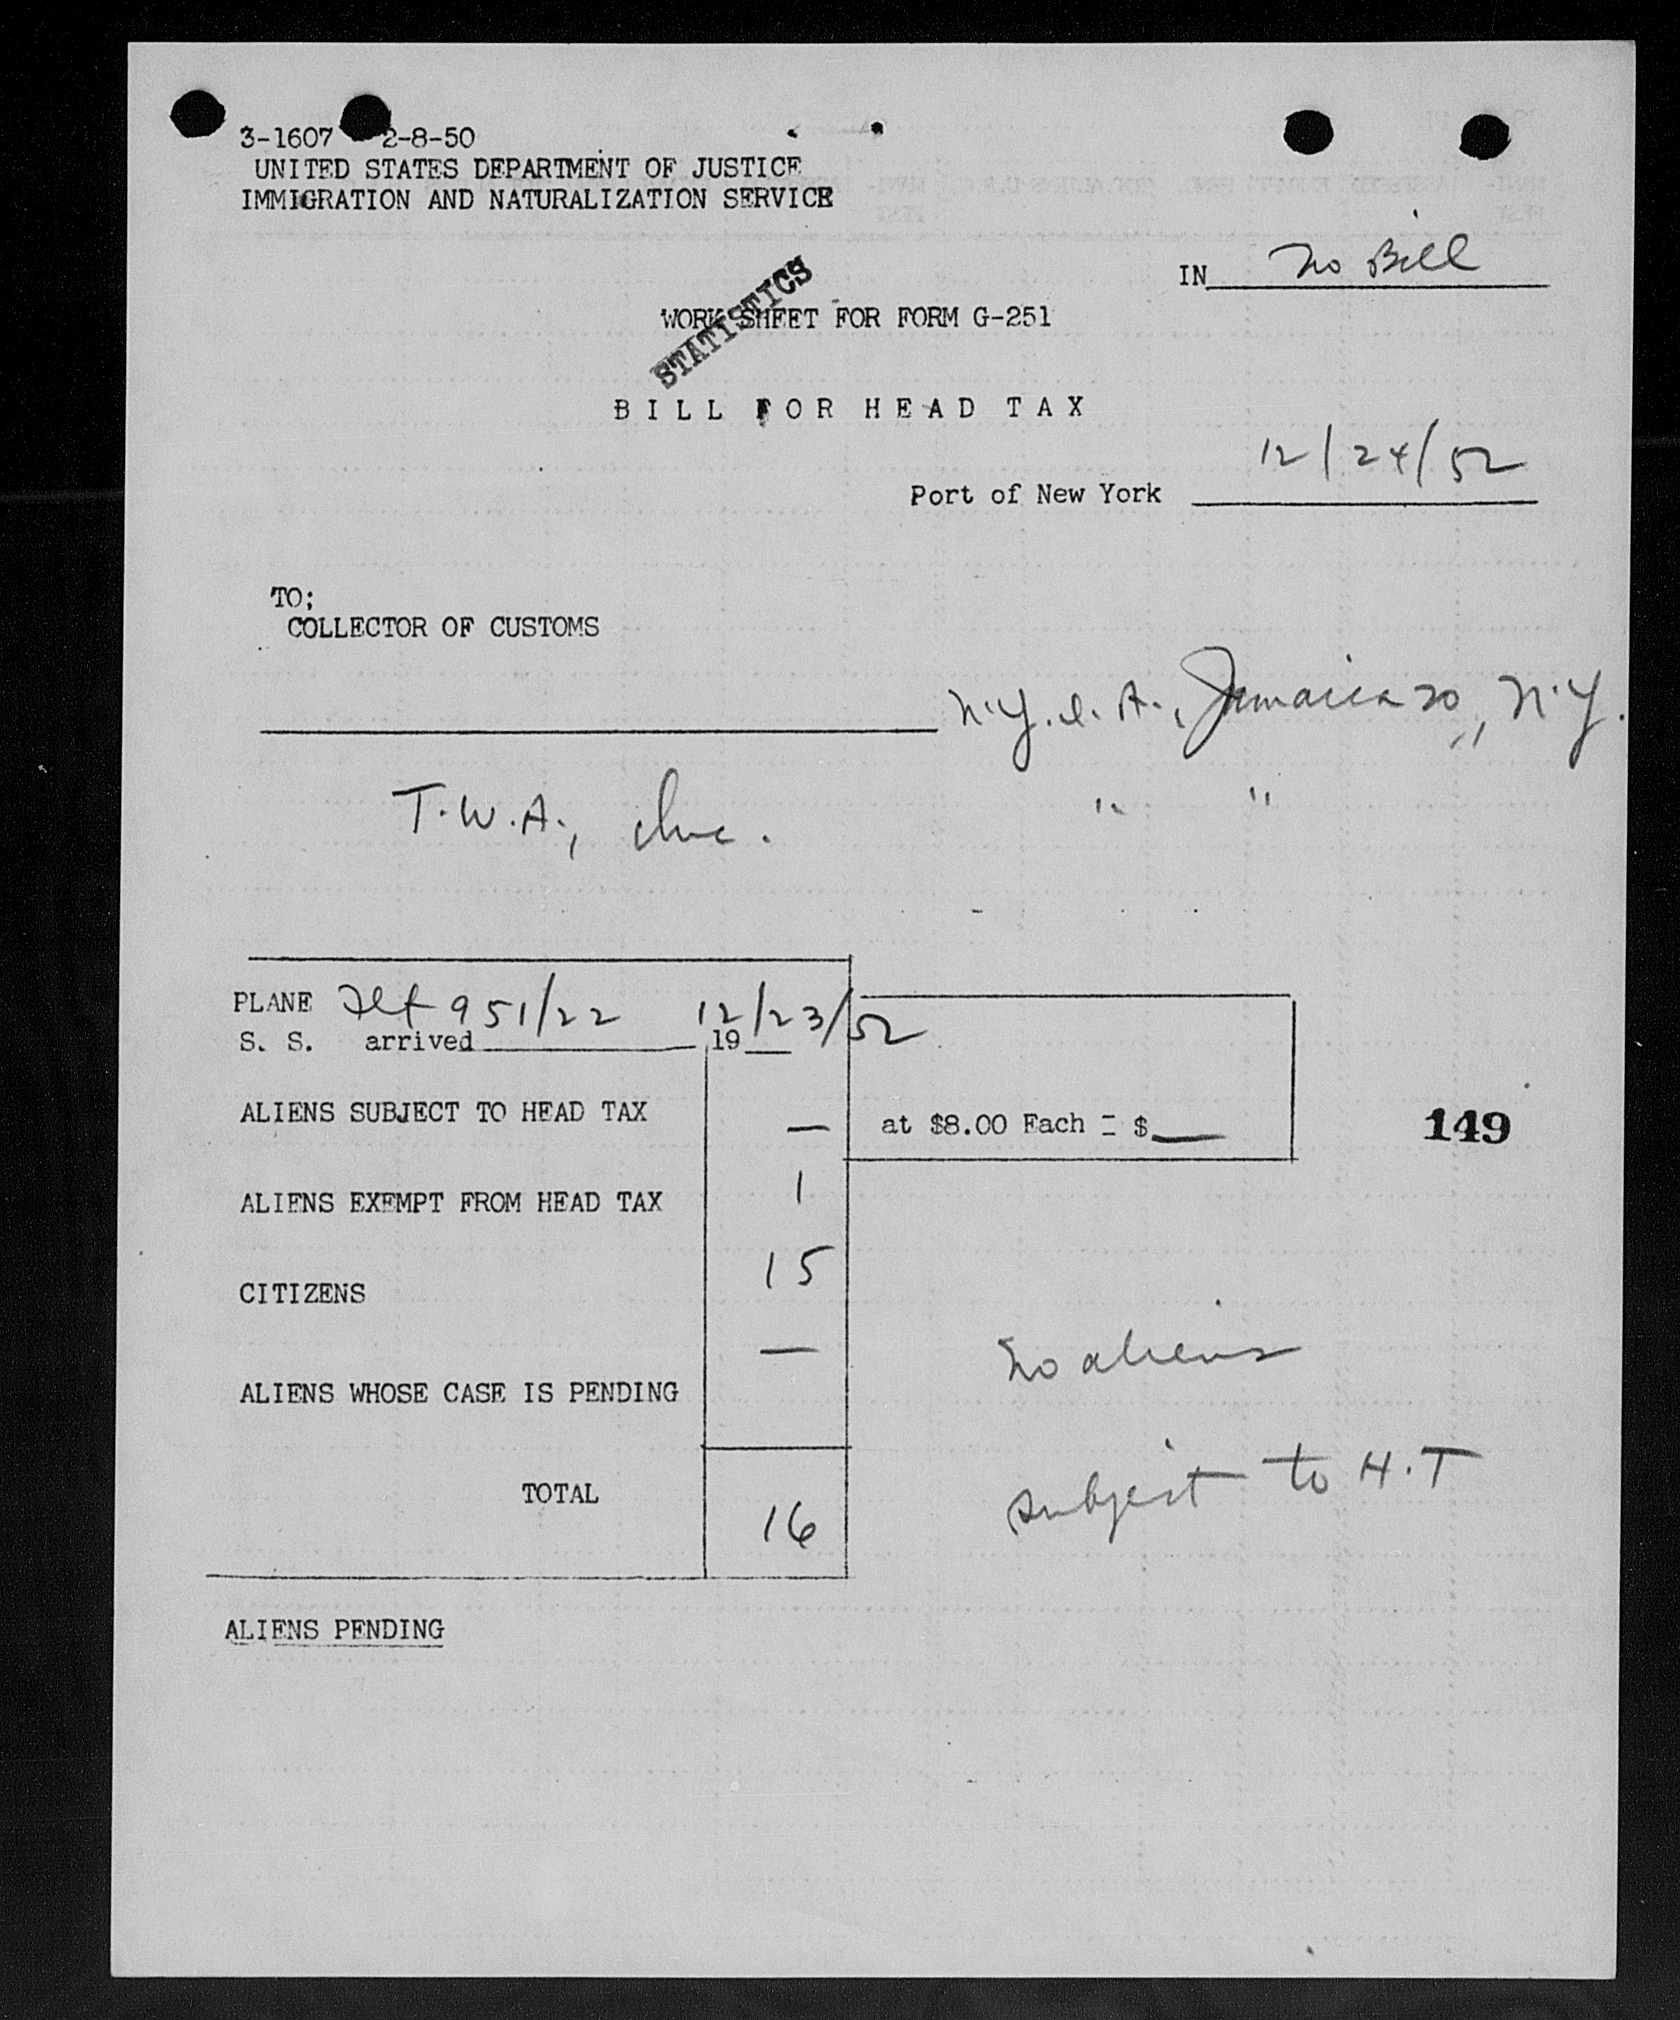 3-1607 2-8-50
UNITED STATES DEPARTMENT OF JUSTICE
IMMIGRATION AND NATURALIZATION SERVICE
IN No Bill
WORK SHEET FOR FORM G-251
STATISTICS
BILL FOR HEAD TAX
12/24/52
Port of New York
TO;
COLLECTOR OF CUSTOMS
N.Y.I.A., Jamaica 30, N.Y.
T.W.A., Inc. " "
PLANE Flt 951/22 12/23/52
S. S. arrived 19
ALIENS SUBJECT TO HEAD TAX — at $8.00 Each = $ —
149
ALIENS EXEMPT FROM HEAD TAX 1
CITIZENS 15
ALIENS WHOSE CASE IS PENDING —
No aliens
subject to H.T
TOTAL 16
ALIENS PENDING